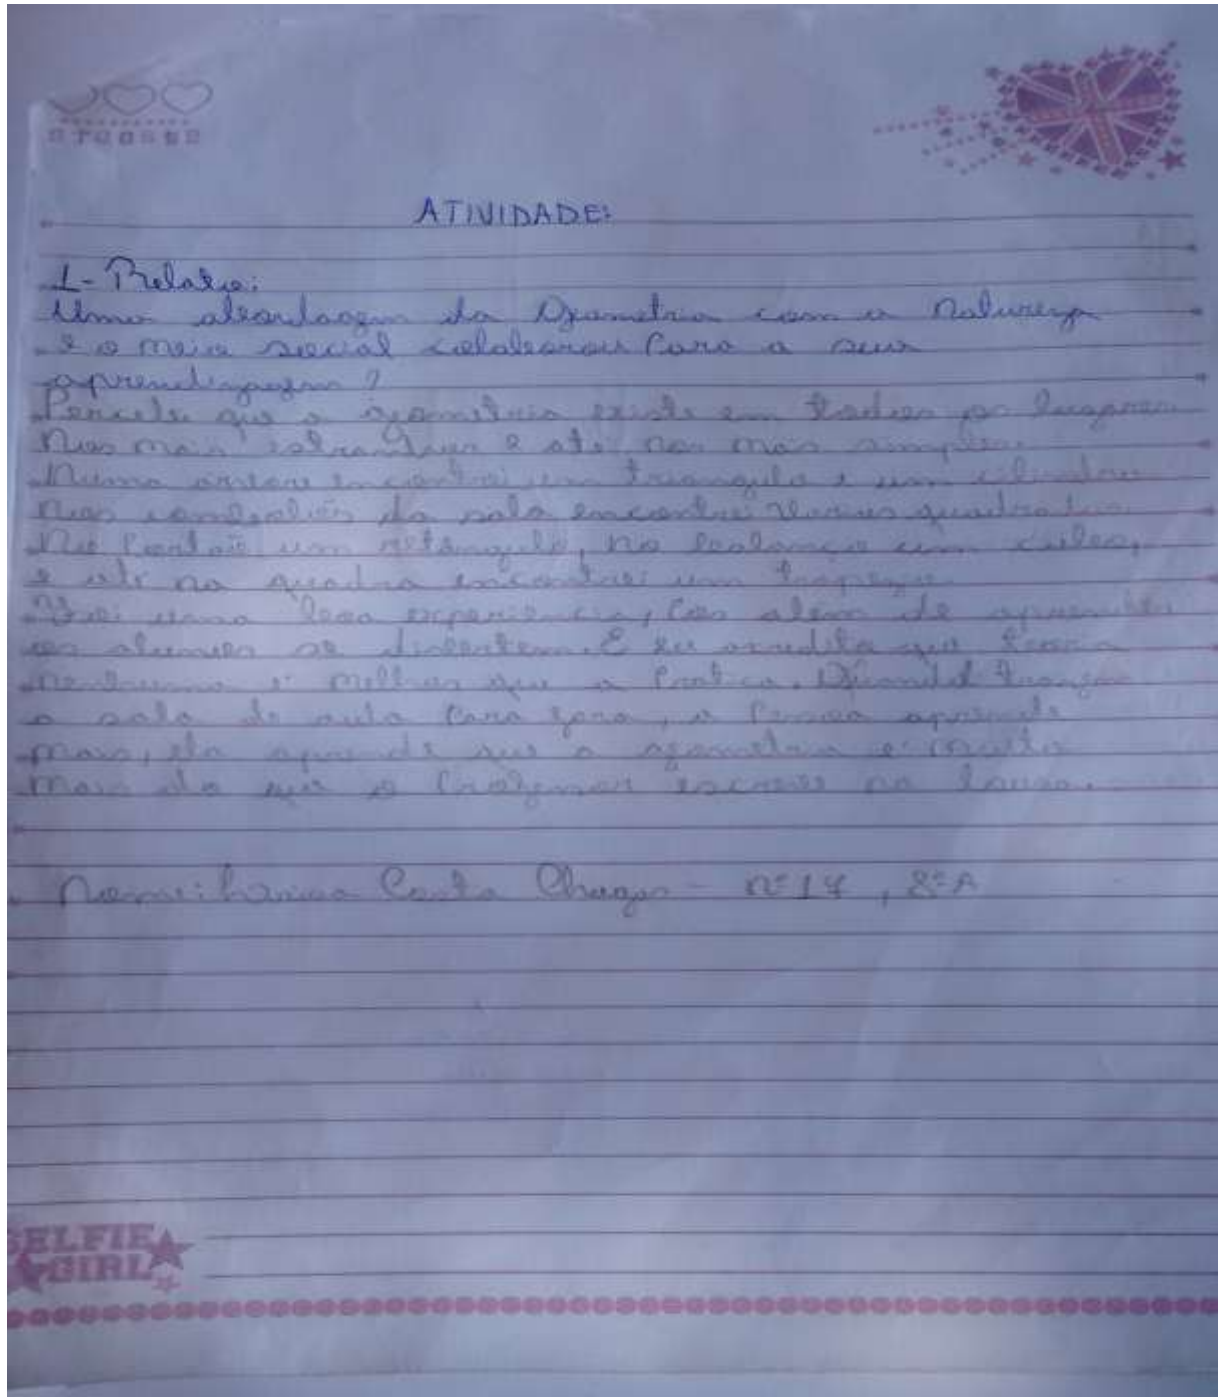 ATIVIDADE:
1- Relate:
Uma abordagem da Geometria com a Natureza
e o meio social colaborou para a sua
aprendizagem?
Percebi que a geometria existe em todos os lugares
Nos mais estranhos e até nos mais simples.
Numa árvore encontrei um triangulo e um cilindro
nas da sala encontrei varios quadrados.
No Portão um retângulo, no balanço um cubo,
e até na quadra encontrei um trapezio.
Foi uma boa experiencia, Pois além de aprender
os alunos se divertem. E eu acredito que teoria
nenhuma é melhor que a Pratica. Quando
a sala de aula Para fora, a Pessoa aprende
mais, ela aprende que a geometria é muito
mais do que o Professor escreve na lousa.
Nome: Costa Chagas - nº 17, 8ºA
SELFIE
GIRL